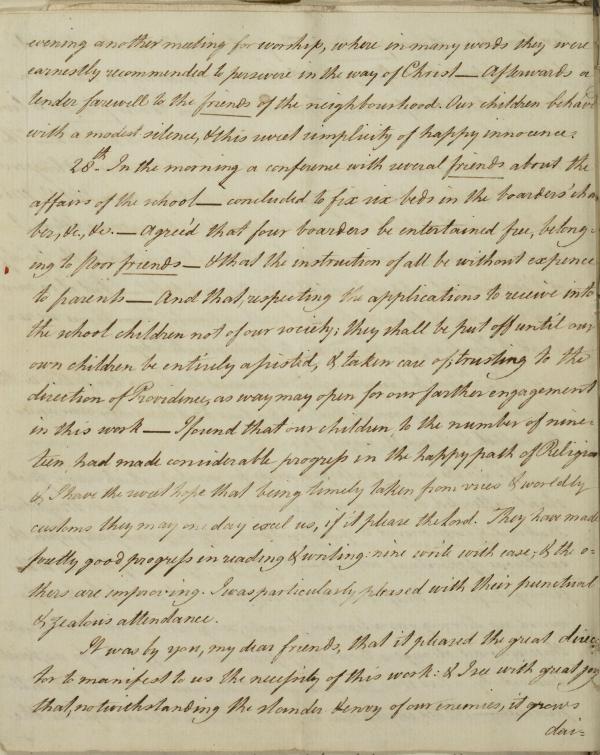 evening another meeting for worship, where in many words they were
earnestly recommended to persevere in the way of Christ — Afterwards a
tender farewell to the friends of the neighbourhood. Our children behav'd
with a modest silence, & this sweet simplicity of happy innocence.
28.th In the morning a conference with several friends about the
affairs of the school — concluded to fix six beds in the boarders' cham
ber, &c, &c. — Agree'd that four boarders be entertained free, belong-
ing to poor friends — & that the instruction of all be without expence
to parents — And that, respecting the applications to receive into
the school children not of our society; they shall be put off until our
own children be entirely assisted, & taken care of; trusting to the
direction of Providence, as way may open for our farther engagement
in this work — I found that our children to the number of nine-
teen, had made considerable progress in the happy path of Religion
&, I have the sweet hope that being timely taken from vices & worldly
customs they may one day excel us, if it please the Lord. They have made
pretty good progress in reading & writing: nine write with ease, & the o=
thers are improving. I was particularly pleased with their punctual
& zealous attendance.
It was by you, my dear friends, that it pleased the great direc=
tor to manifest to us the necessity of this work: & I see with great joy
that, notwithstanding the slander & envy of our enemies, it grows
dai=